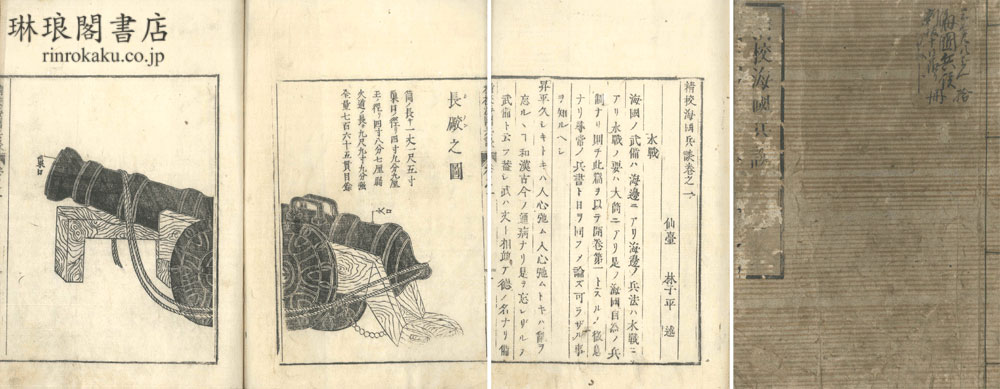 琳琅閣書店
rinrokaku.co.jp
校海國兵談
精校海國兵談卷之一
仙臺 林子平 述
水戰
海國ノ武備ハ海邊ニアリ海邊ノ兵法ハ水戰ニ
アリ水戰ノ要ハ大筒ニアリ是ノ海國自然ノ兵
制ナリ則チ此篇ヲ以テ開卷第一トスルノ微意
ナリ尋常ノ兵書ト日ヲ同フノ論ズ可ラザル事
ヲ知ルヘシ
昇平久シキトキハ人心弛ム人心弛ムトキハ亂ヲ
忘ルヽコ和漢古今ノ通病ナリ是ヲ忘レザルヲ
武備ト云フ蓋シ武ハ文ト相 德ノ名ナリ備
長 之圖
筒ノ長サ一丈一尺五寸
巢口径リ四寸九分九厘
玉ノ径リ四寸八分七厘弱
火道ノ長九尺九寸九分強
全量七百六十五貫目餘
火口
巢口